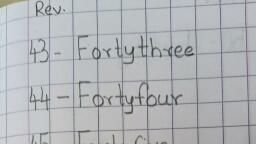 Rev.
43 - Fortythree
44 - Fortyfour